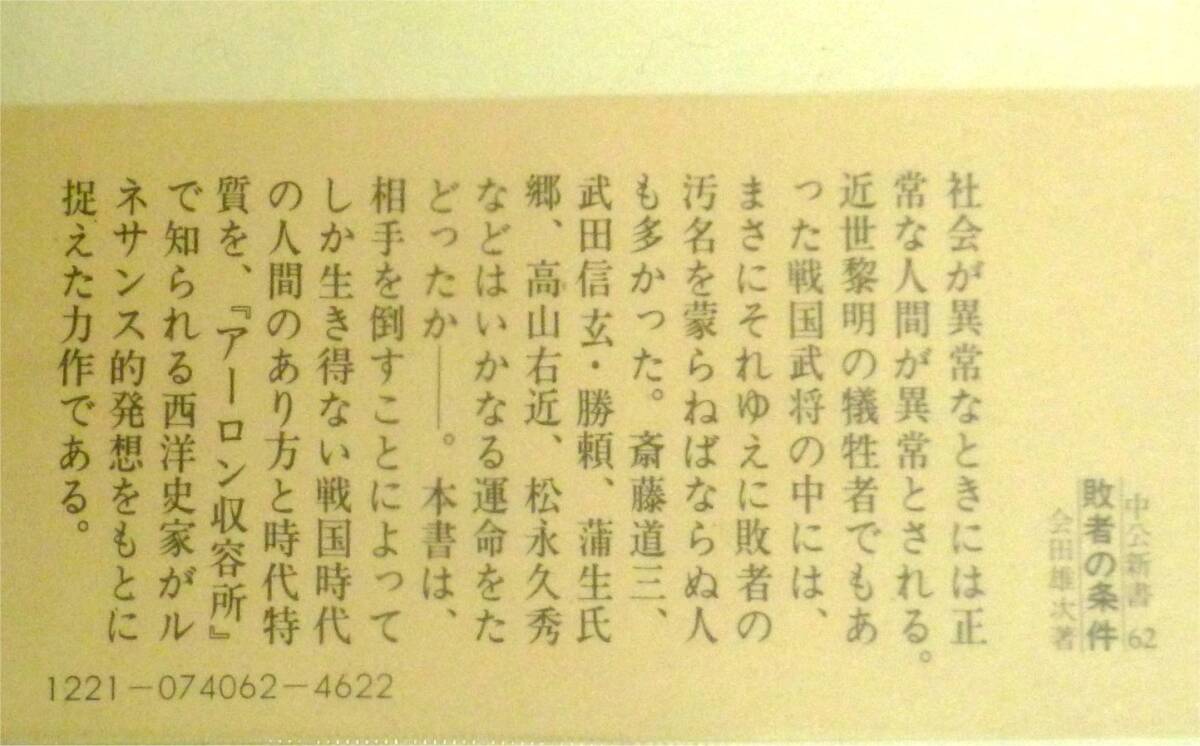 中公新書 62
敗者の条件
会田雄次著
社会が異常なときには正
常な人間が異常とされる。
近世黎明の犠牲者でもあ
った戦国武将の中には、
まさにそれゆえに敗者の
汚名を蒙らねばならぬ人
も多かった。斎藤道三、
武田信玄・勝頼、蒲生氏
郷、高山右近、松永久秀
などはいかなる運命をた
どったか――。本書は、
相手を倒すことによって
しか生き得ない戦国時代
の人間のあり方と時代特
質を、『アーロン収容所』
で知られる西洋史家がル
ネサンス的発想をもとに
捉えた力作である。
1221-074062-4622